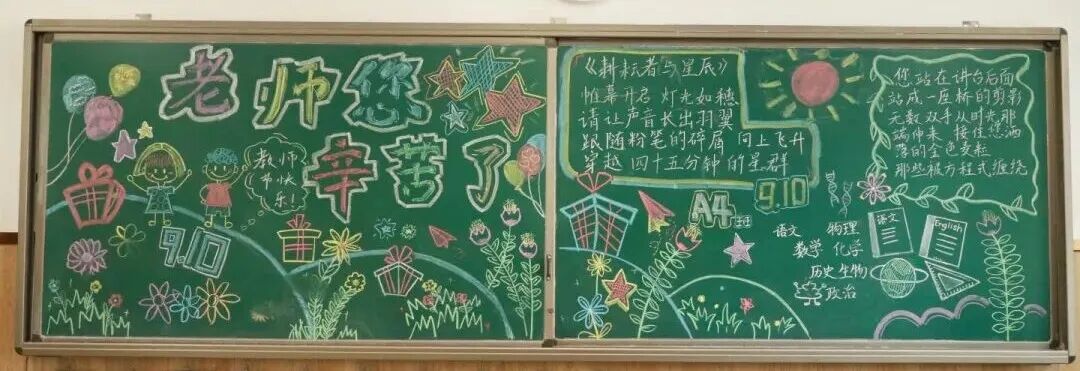 老师您
辛苦了
教师
节快
乐!
9.10
《耕耘者与星辰》
帷幕开启 灯光如穗
请让声音长出羽翼
跟随粉笔的碎屑 向上飞升
穿越 四十五分钟的星群
A4班
9.10
您站在讲台后面
站成一座桥的剪影
无数双手从时光那
端伸来 接住您洒
落的金色麦粒
那些被方程式缠绕
语文 物理
数学 化学
历史 生物
政治
语文
English